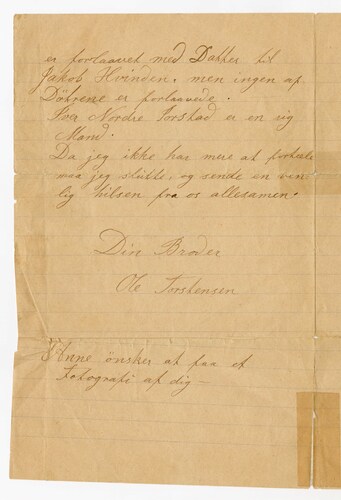 er forlaavet med Datter til
Jakob Hvinden, men ingen af
Døtrene er forlaavede.
Iver Nordre Torstad er en rig
Mand.
Da jeg ikke har mere at fortælle
maa jeg slutte, og sende en ven
lig hilsen fra os allesamen.
Din Broder
Ole Torstensen
Anne ønsker at faa et
Fotografi af dig —